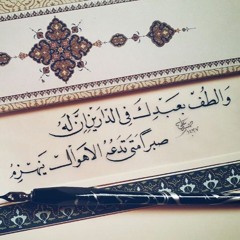 وَالْطُفْ بِعَبْدِكَ فِي الدَّارَيْنِ إِنَّ لَهُ
صَبْرًا مَتَى تَدْعُهُ الْأَهْوَالُ يَنْهَزِمِ